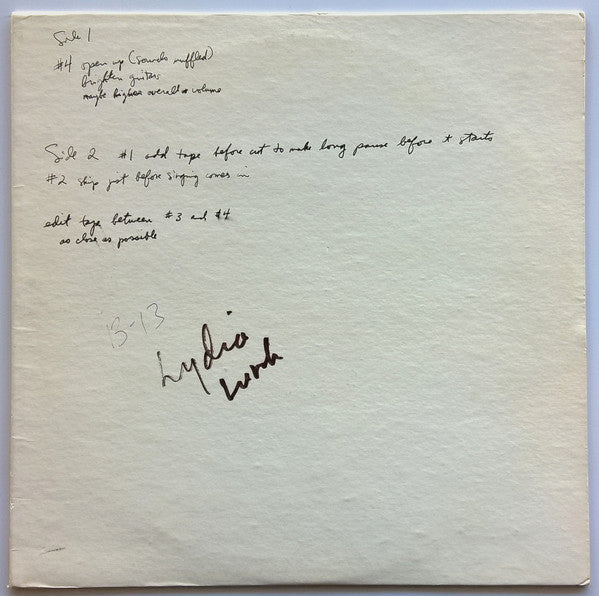 Side 1
#4 open up (sounds muffled)
brighten guitars
maybe higher overall volume
Side 2 #1 add tape before cut to make long pause before it starts
#2 skip just before singing comes in
edit tape between #3 and #4
as close as possible
13-13
Lydia
Lunch